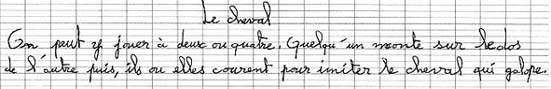 Le cheval
On peut y jouer à deux ou quatre. Quelqu'un monte sur le dos
de l'autre puis, ils ou elles courent pour imiter le cheval qui galope.